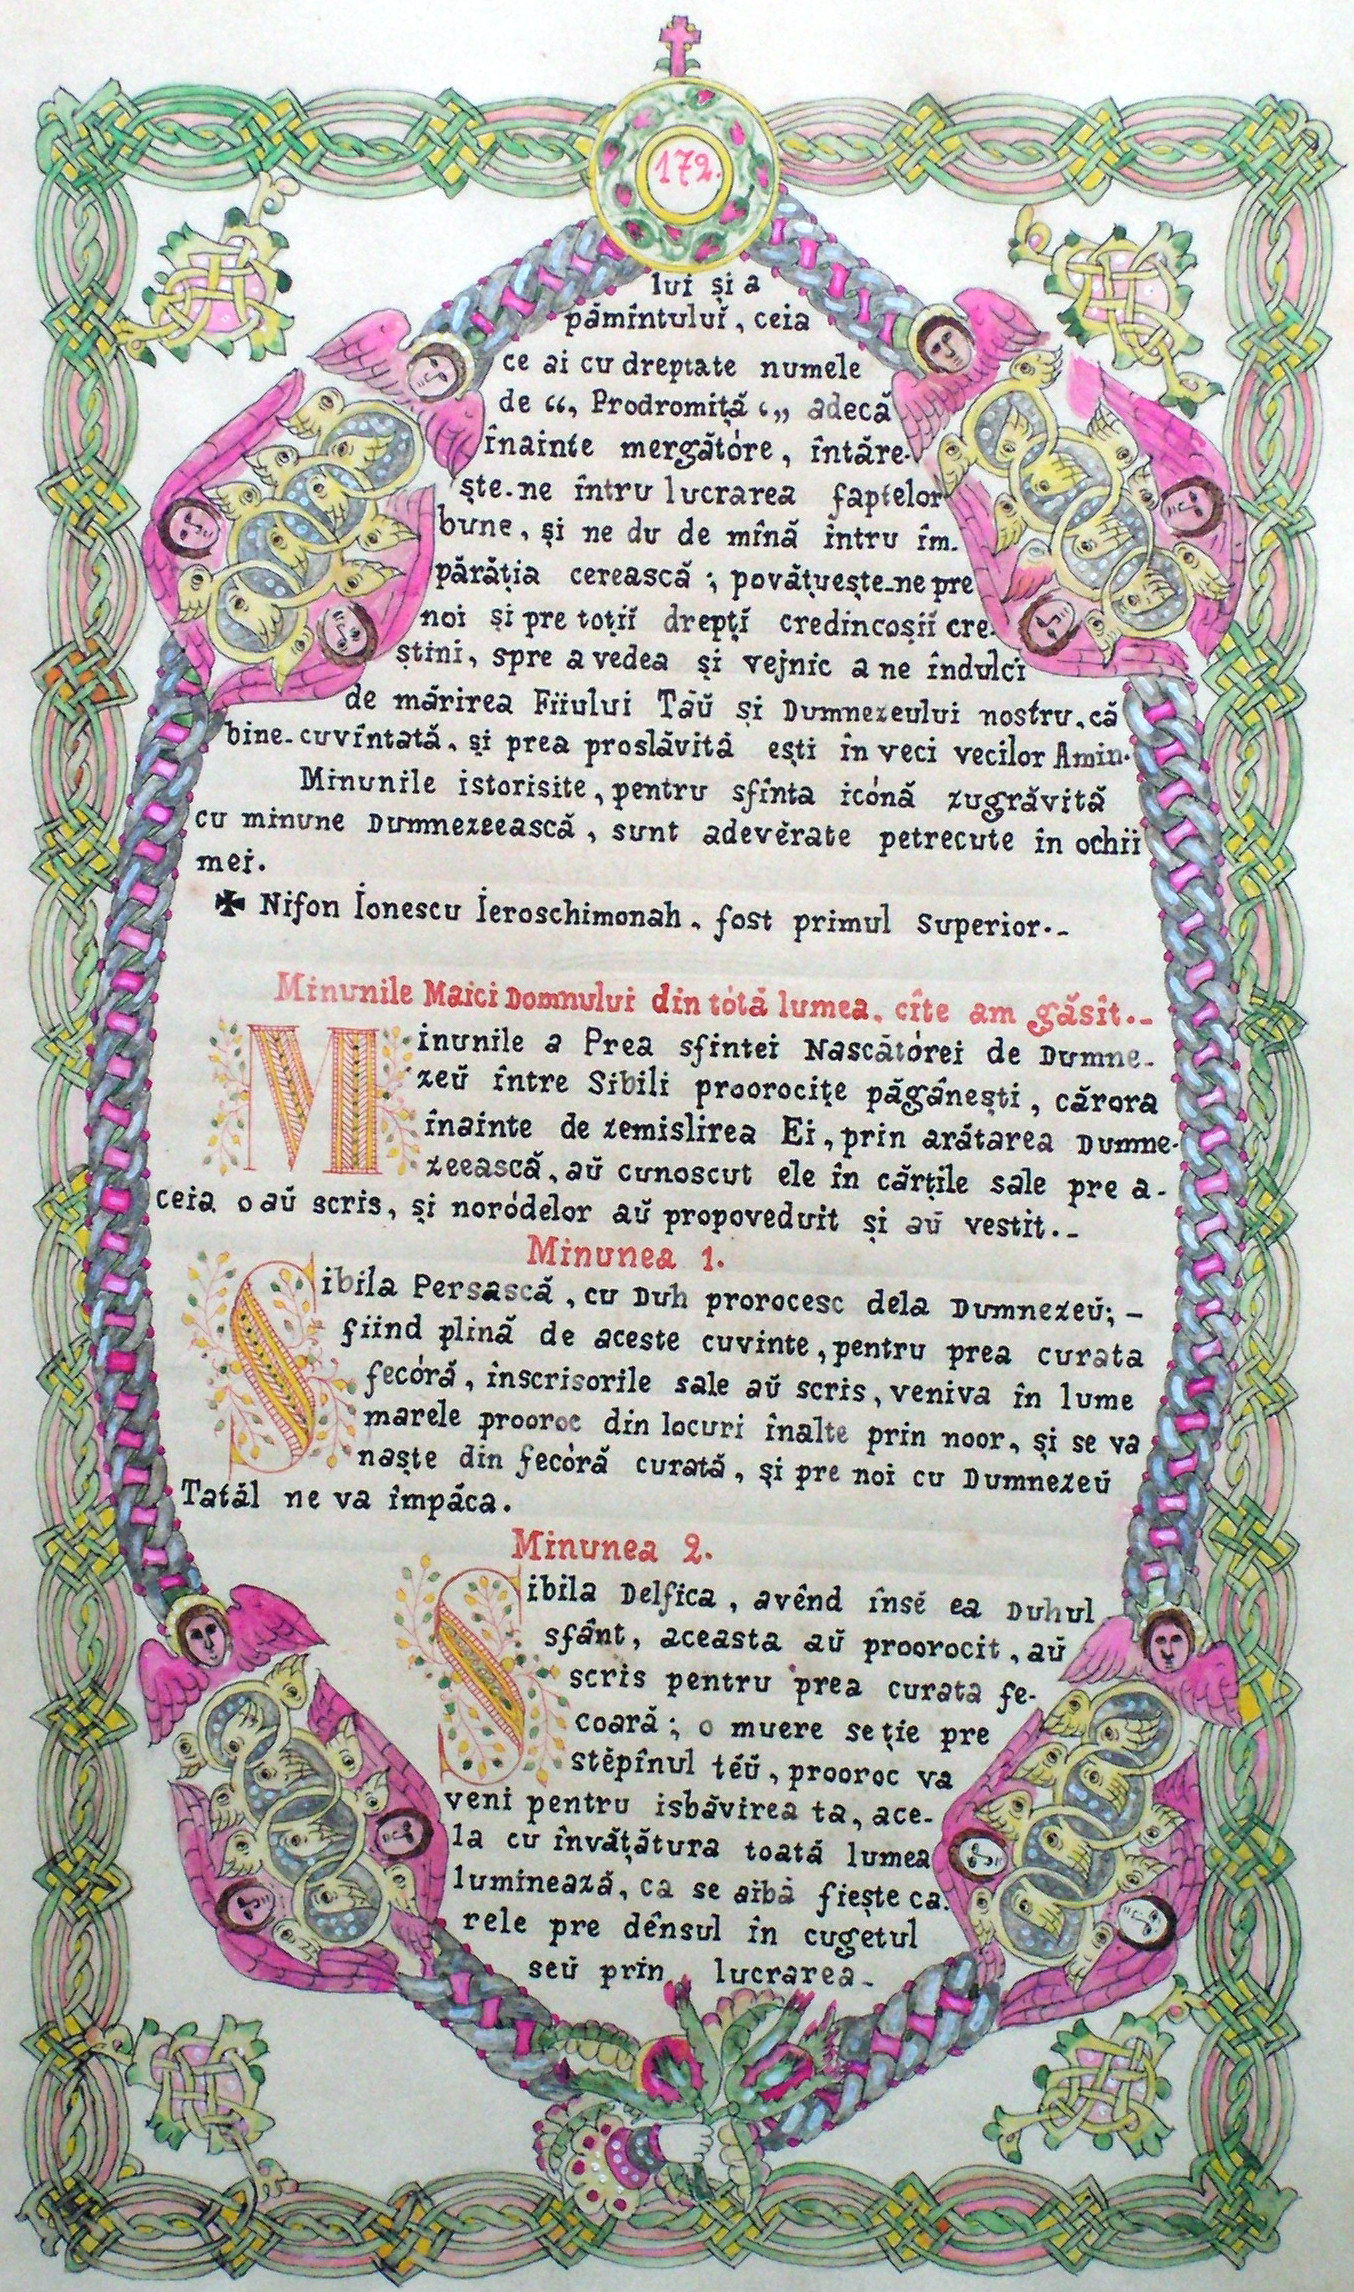 172.
lui și a
pămîntuluĭ, ceia
ce ai cu dreptate numele
de “, Prodromiță ‘„ adecă
înainte mergătóre, întăre-
ște-ne întru lucrarea faptelor
bune, și ne du de mînă intru îm-
părăția cerească ; povățuește-ne pre
noi și pre toțiĭ drepțĭ credincoșiĭ cre-
știni, spre a vedea și vejnic a ne îndulci
de mărirea Fiiului Tăŭ și Dumnezeului nostru, că
bine-cuvîntată, și prea proslăvită ești în veci vecilor Amin.
Minunile istorisite, pentru sfînta icónă zugrăvită
cu minune Dumnezeească, sunt adevĕrate petrecute în ochii
mei.
✠ Nifon Ionescu Ieroschimonah, fost primul Superior.-
Minunile Maici Domnului din tótă lumea, cîte am găsit.-
Minunile a Prea sfintei Nascătórei de Dumne-
zeŭ între Sibili proorocițe păgânești, cărora
înainte de zemislirea Ei, prin arătarea Dumne-
zeească, aŭ cunoscut ele în cărțile sale pre a-
ceia o aŭ scris, și noródelor aŭ propoveduit și aŭ vestit.-
Minunea 1.
Sibila Persască, cu Duh prorocesc dela Dumnezeŭ; –
fiind plină de aceste cuvinte, pentru prea curata
fecóră, înscrisorile sale aŭ scris, veniva în lume
marele prooroc din locuri înalte prin noor, și se va
naște din fecóră curată, și pre noi cu Dumnezeŭ
Tatăl ne va împăca.
Minunea 2.
Sibila Delfica, avênd însĕ ea Duhul
sfânt, aceasta aŭ proorocit, aŭ
scris pentru prea curata fe-
coară ; o muere se ție pre
stĕpînul tĕŭ, prooroc va
veni pentru isbăvirea ta, ace-
la cu învățătura toată lumea
luminează, ca se aibă fiește ca-
rele pre dênsul în cugetul
seŭ prin lucrarea-